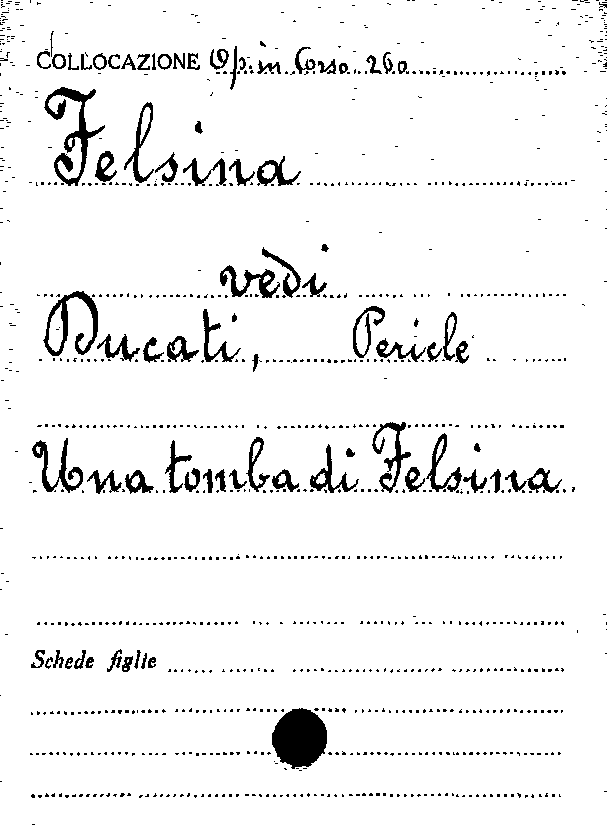 COLLOCAZIONE Op. in Corso 260
Felsina
vedi
Ducati, Pericle
Una tomba di Felsina
Schede figlie